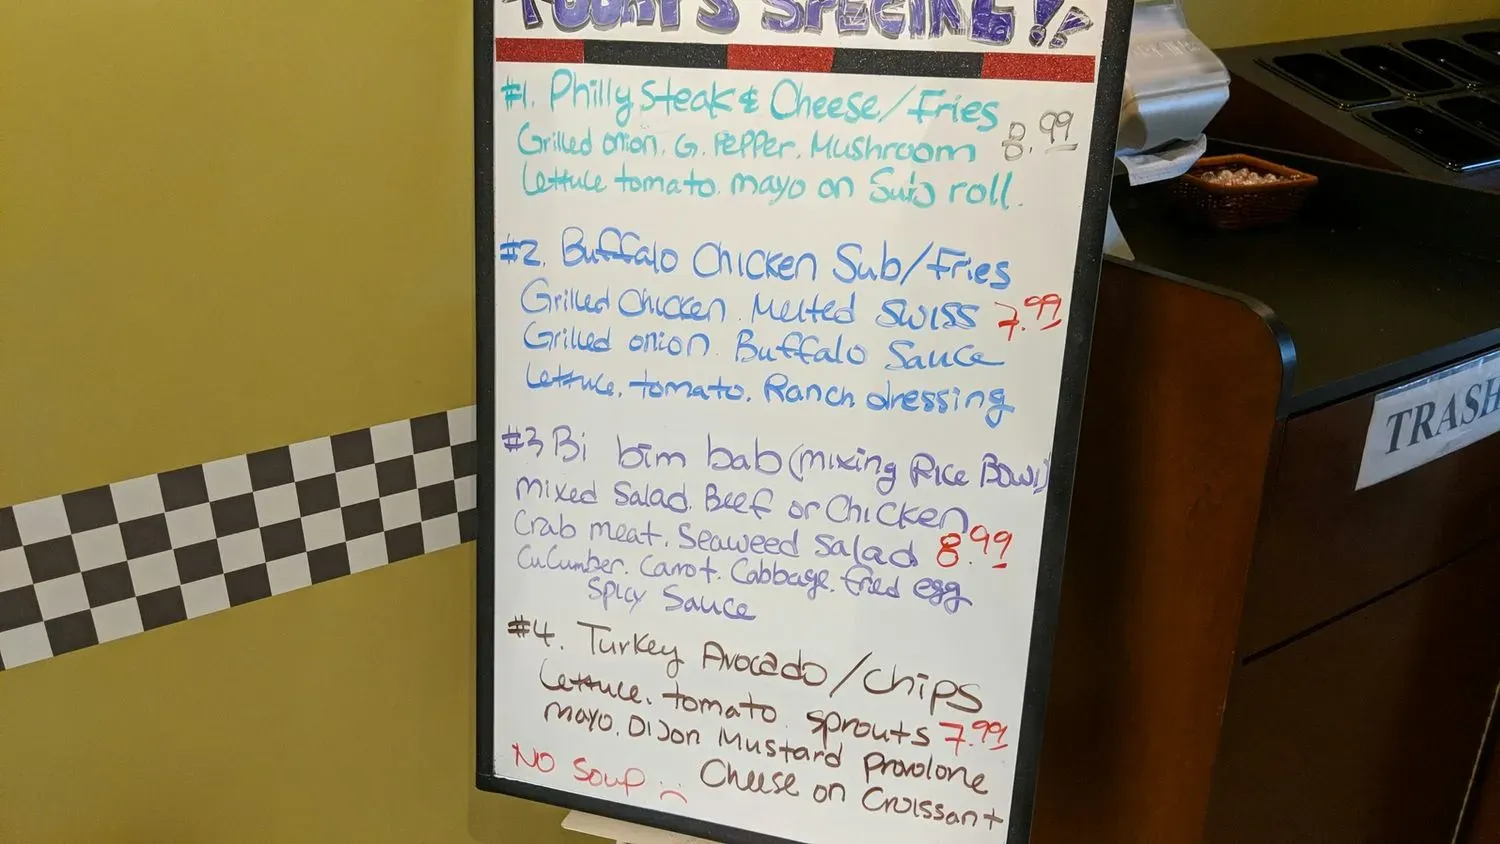 TODAY'S SPECIAL!!
#1. Philly Steak & Cheese/Fries
8.99
Grilled onion. G. Pepper. Mushroom
Lettuce tomato. mayo on Sub roll.
#2. Buffalo Chicken Sub/Fries
Grilled Chicken. Melted Swiss 7.99
Grilled onion. Buffalo Sauce
Lettuce. tomato. Ranch dressing
#3 Bi bim bab (mixing Rice Bowl)
Mixed Salad. Beef or Chicken
Crab meat. Seaweed Salad 8.99
CuCumber. Carrot. Cabbage. fried egg
Spicy Sauce
#4. Turkey Avocado/chips
Lettuce. tomato. sprouts 7.99
mayo. Dijon Mustard Provolone
Cheese on Croissant
No Soup
TRASH